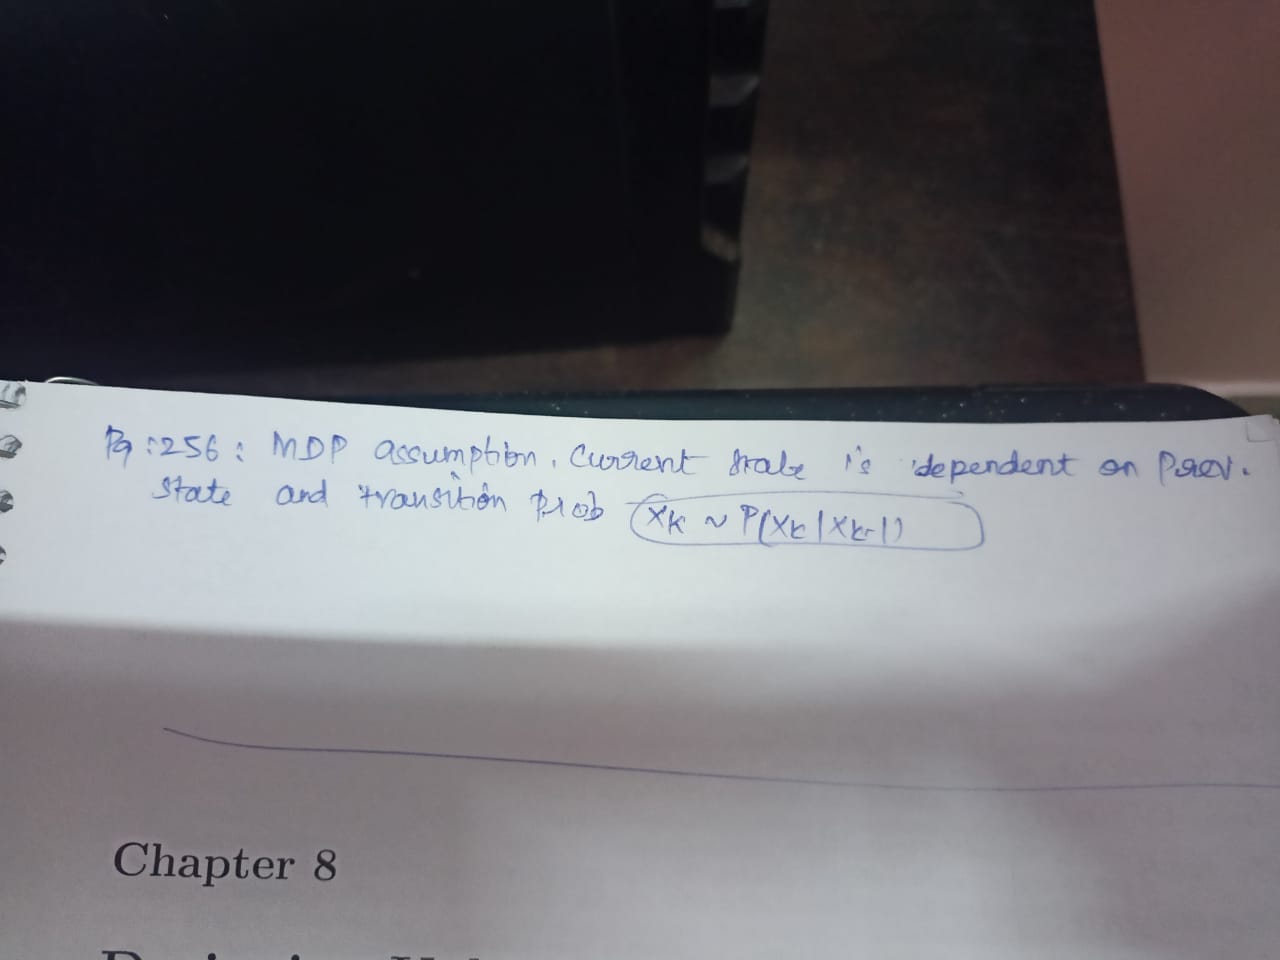 Pg : 256 : MDP assumption. Current state is dependent on Prev.
state and transition prob Xk ~ P(Xk | Xk-1)
Chapter 8